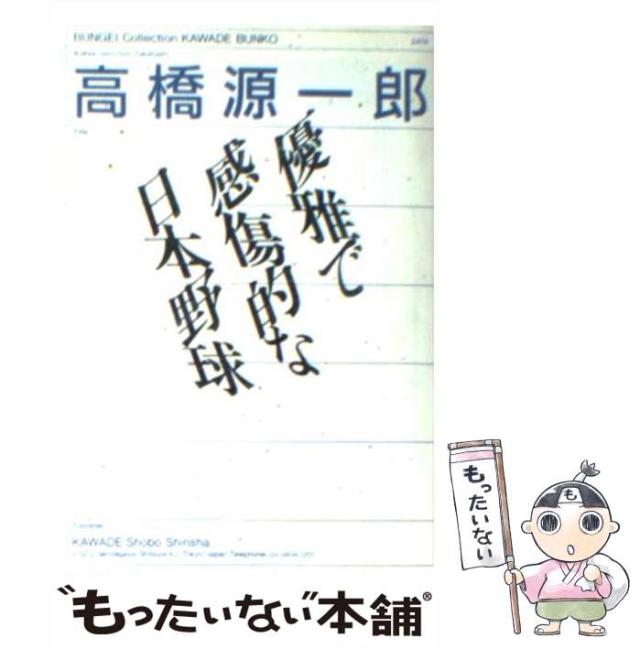 BUNGEI Collection KAWADE BUNKO
高橋源一郎
Title
優雅で
感傷的な
日本野球
Publisher
KAWADE Shobo Shinsha
"もったいない"本舗®
もったいない
も